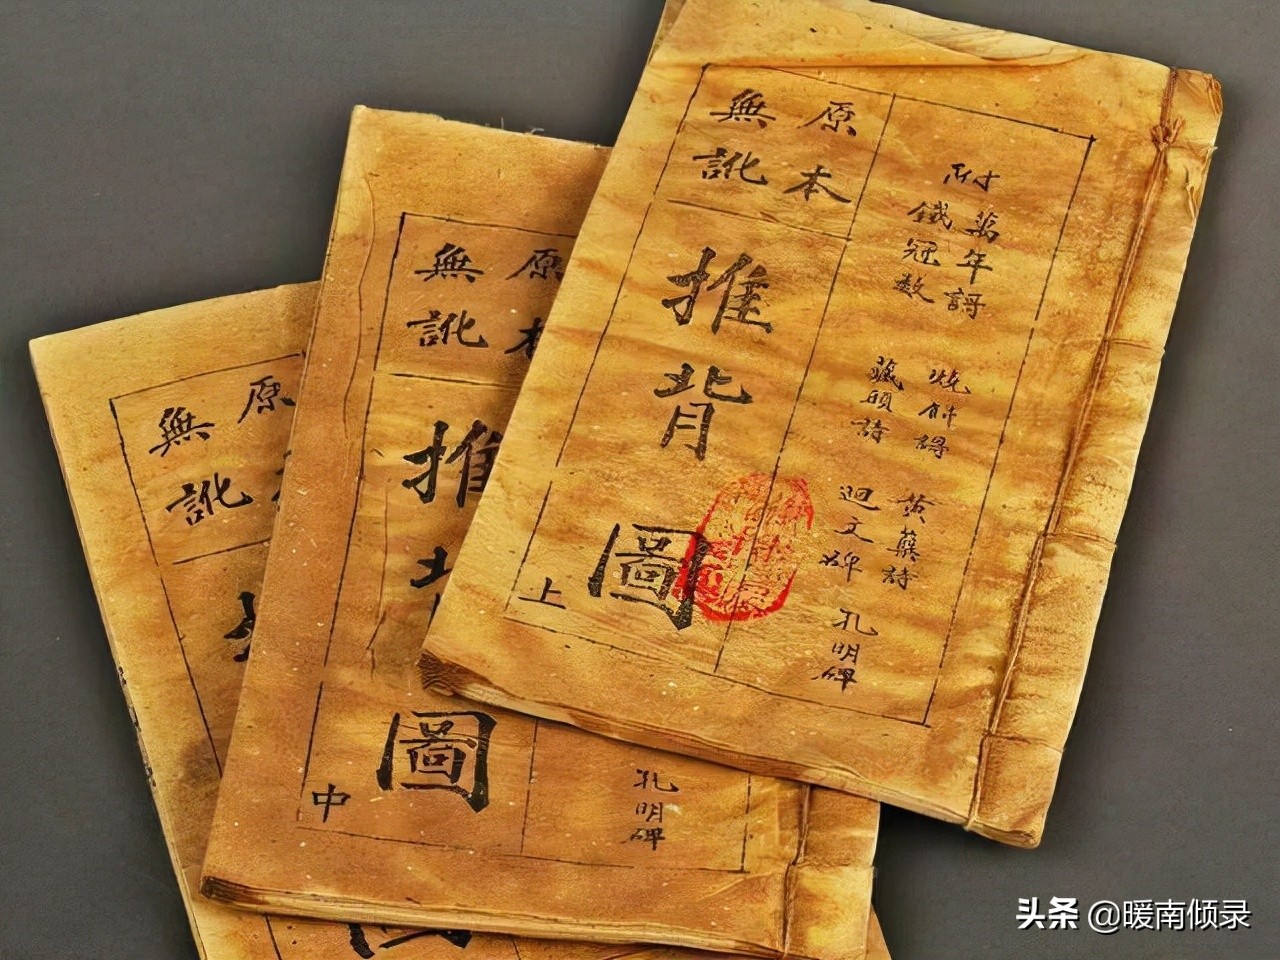 附
萬年謌
鐵冠數
燒餅謌
藏頭詩
黃蘗詩
迴文碑
孔明碑
原本
無訛
推背圖
上
孔明碑
原本
無訛
推
圖
中
原
無訛
头条 @暖南倾录